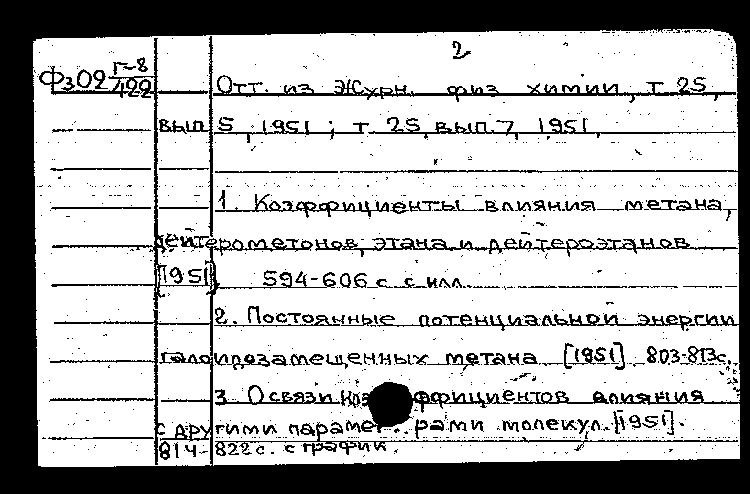 2
Фз02 Г-8/422
Отт. из Журн. физ химии, т 25,
вып 5, 1951; т. 25, вып. 7, 1951.
1. Коэффициенты влияния метана,
дейтерометонов, этана и дейтероэтанов
[1951]. 594-606 с. с илл.
2. Постоянные потенциальной энергии
галоидозамещенных метана [1951] 803-813с.
3. О связи ффициентов влияния
с другими рами молекул. [1951].
814-822 с. с график.